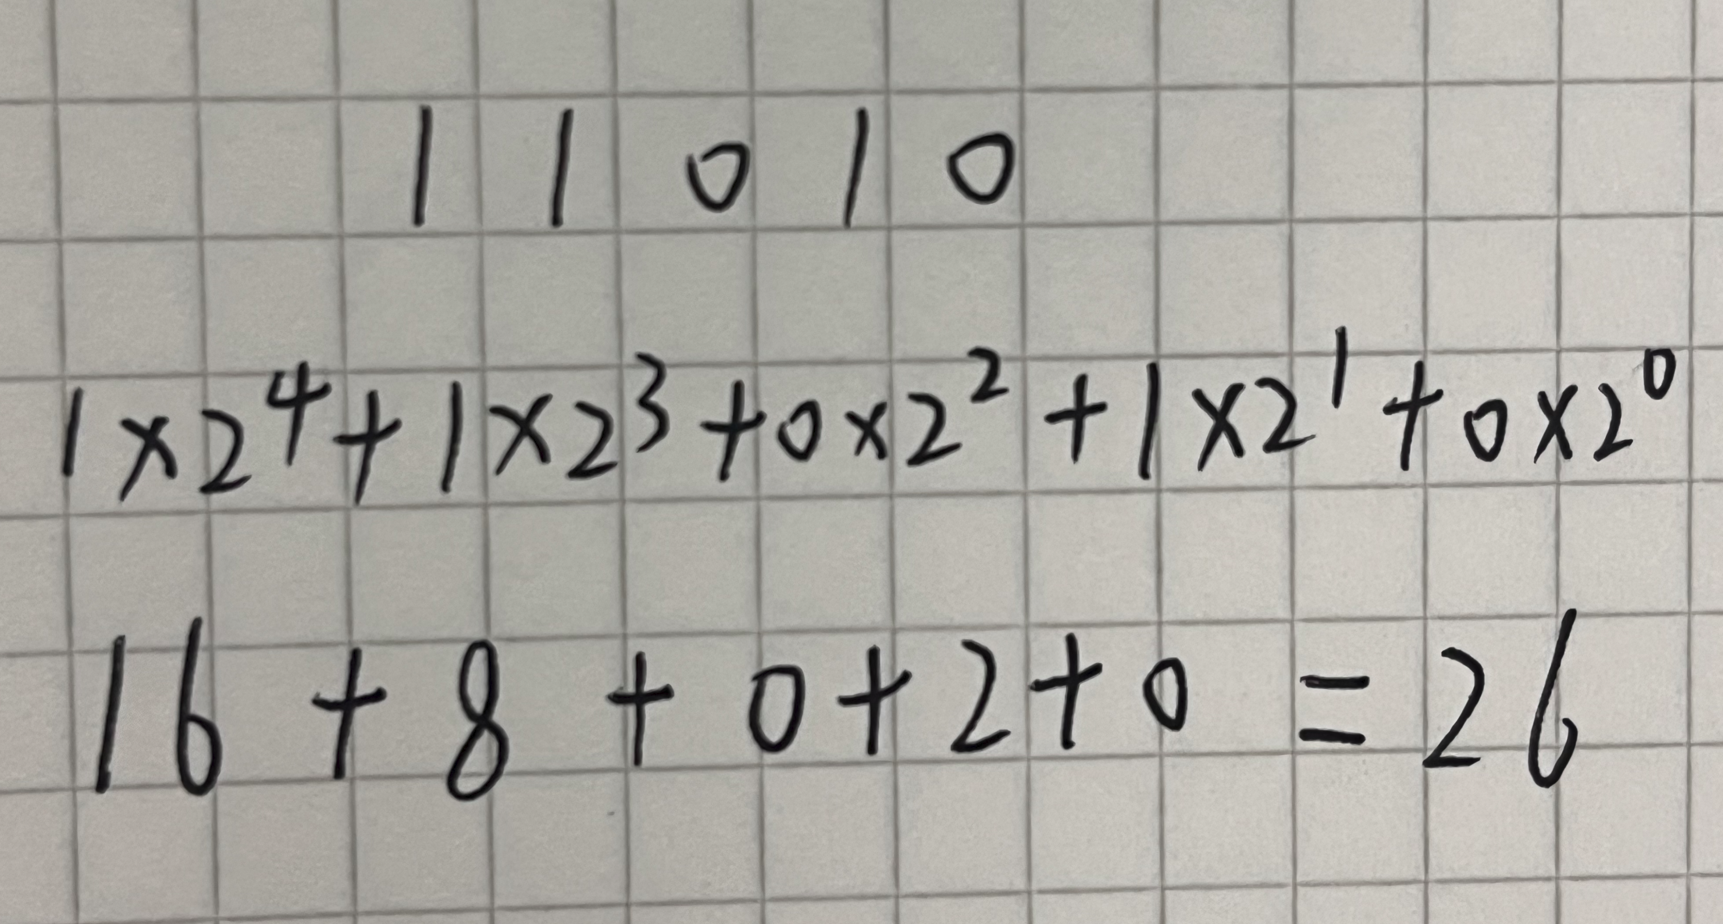 1 1 0 1 0
1×2⁴+1×2³+0×2²+1×2¹+0×2⁰
16+8+0+2+0=26